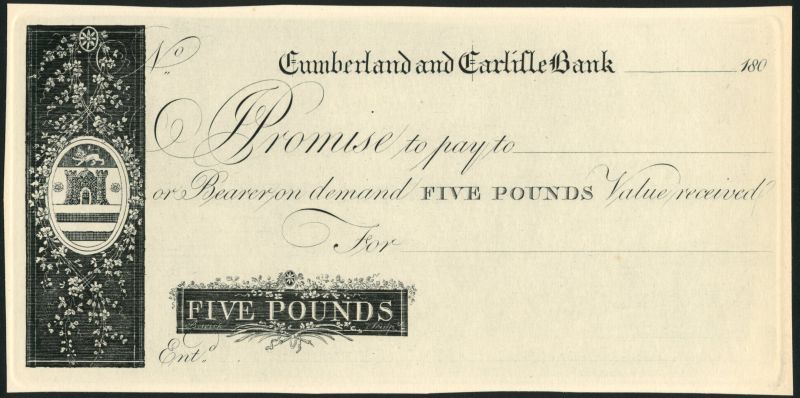 No. Cumberland and Carlisle Bank 180
I Promise to pay to
or Bearer, on demand FIVE POUNDS Value received
For
FIVE POUNDS
Bewick Sculp.
Ent.d